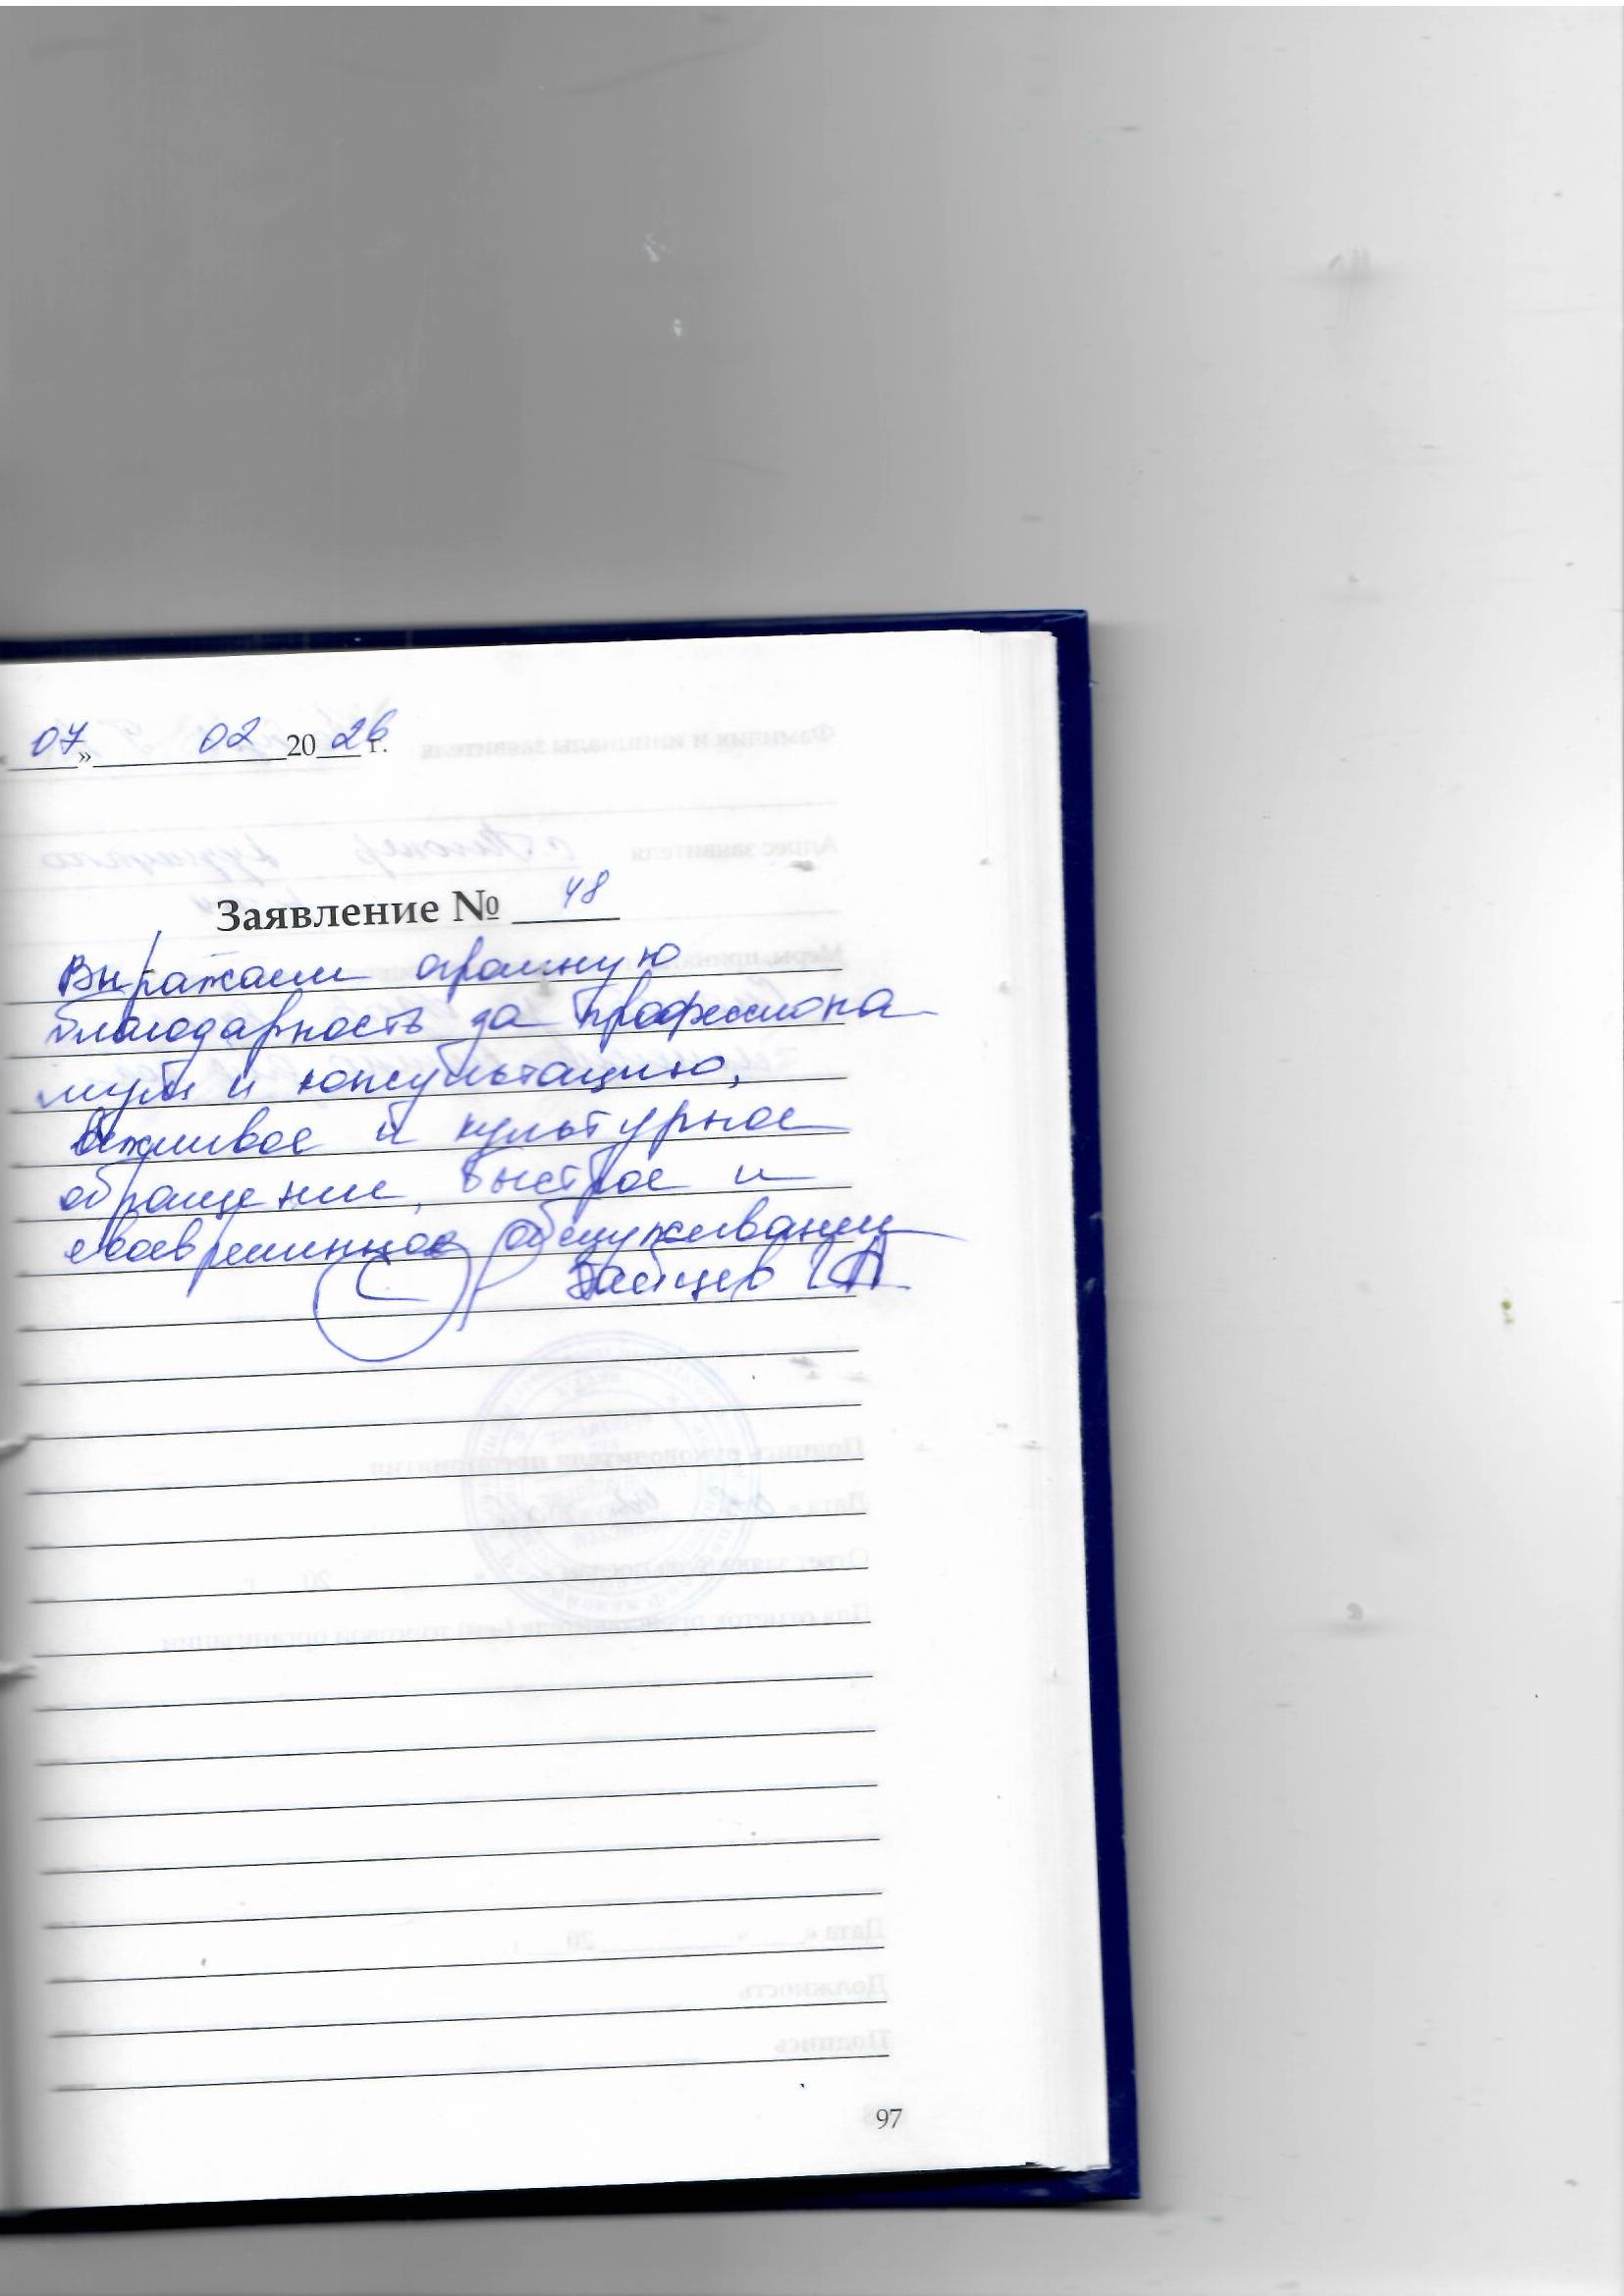 «07» 02 2026 г.
Заявление № 48
Выражаем огромную
благодарность за профессиона
и консультацию,
вежливое и культурное
обращение, быстрое и
своевременное обслуживание
97